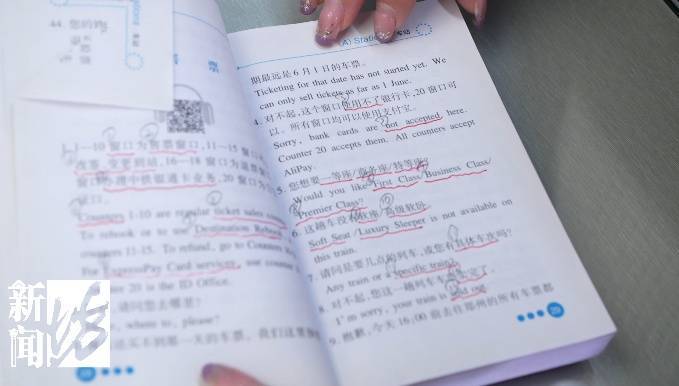 44. 您的
1-10 窗口为售票窗口,11-15 窗口
改签、变更到站,16-18 窗口为退票窗
窗口办理中铁银通卡业务,20 窗口为
证口。
Counters 1-10 are regular ticket sales
To rebook or to use Destination Rebook
counters 11-15. To refund, go to Counters
For ExpressPay Card services, use counter
20 is the ID Office.
请问您去哪里?
where to, please?
还买不到那一天的车票,我们这里
(A) Station 车站
期最远是 6 月 1 日的车票。
Ticketing for that date has not started yet. We
can only sell tickets as far as 1 June.
4. 对不起,这个窗口使用不了银行卡,20 窗口可
以。所有窗口均可以使用支付宝。
Sorry, bank cards are not accepted here.
Counter 20 accepts them. All counters accept
AliPay.
5. 您想要一等座/商务座/特等座?
Would you like First Class/Business Class/
Premier Class?
6. 这趟车没有软座/高级软卧。
Soft Seat/Luxury Sleeper is not available on
this train.
7. 请问是要几点的列车,或您有具体车次吗?
Any train or a specific train?
8. 对不起,您这一趟列车车票售完了。
I'm sorry, your train is sold out.
9. 抱歉,今天 16:00 前去往郑州的所有车票都
29
新闻
坊